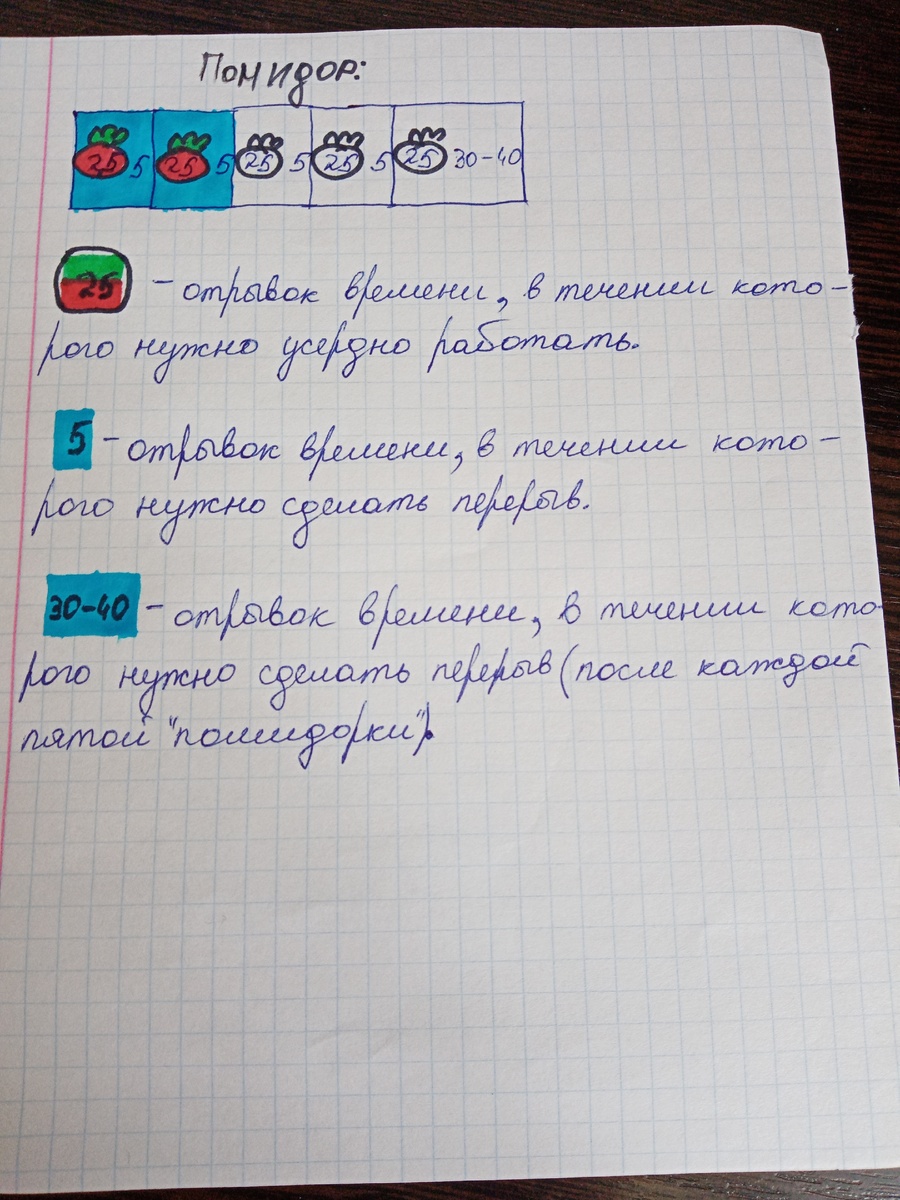 Помидор:
25 5 25 5 25 5 25 5 25 30-40
25 - отрывок времени, в течении кото-
рого нужно усердно работать.
5 - отрывок времени, в течении кото-
рого нужно сделать перерыв.
30-40 - отрывок времени, в течении кото-
рого нужно сделать перерыв (после каждой
пятой "помидорки").